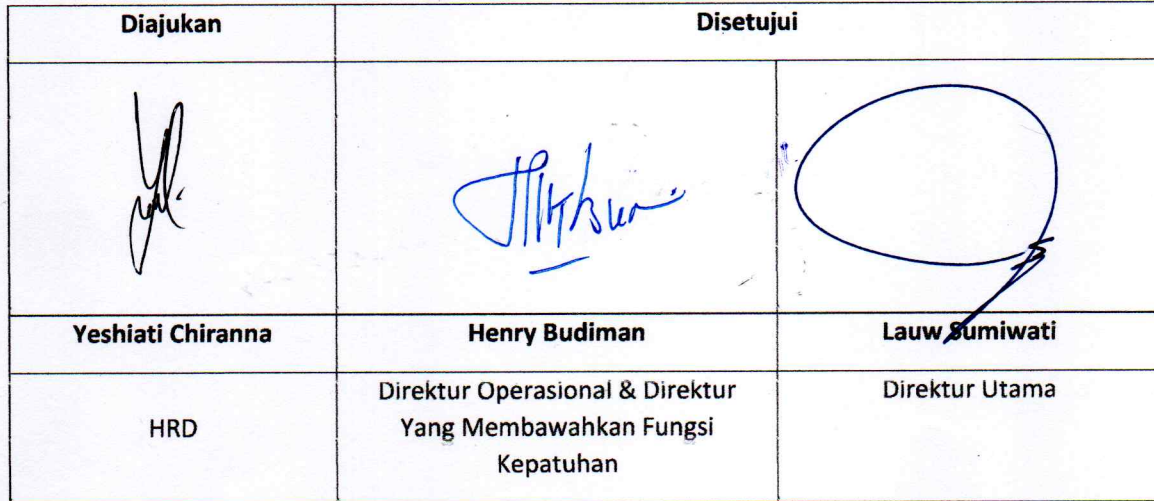 Diajukan
Disetujui
Yeshiati Chiranna
Henry Budiman
Lauw Sumiwati
HRD
Direktur Operasional & Direktur
Yang Membawahkan Fungsi
Kepatuhan
Direktur Utama